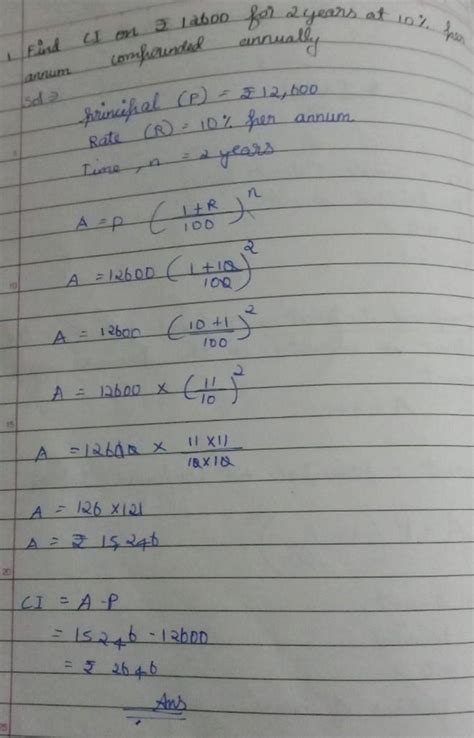 1. Find CI on ₹ 12600 for 2 years at 10% per
annum compounded annually
Sol ⇒
Principal (P) = ₹ 12,600
Rate (R) = 10% per annum
Time, n = 2 years
A = P (1+R/100)^n
A = 12600 (1+10/100)^2
A = 12600 (10+1/100)^2
A = 12600 × (11/10)^2
A = 12600 × 11×11/10×10
A = 126 × 121
A = ₹ 15,246
CI = A-P
= 15246 - 12600
= ₹ 2646
Ans